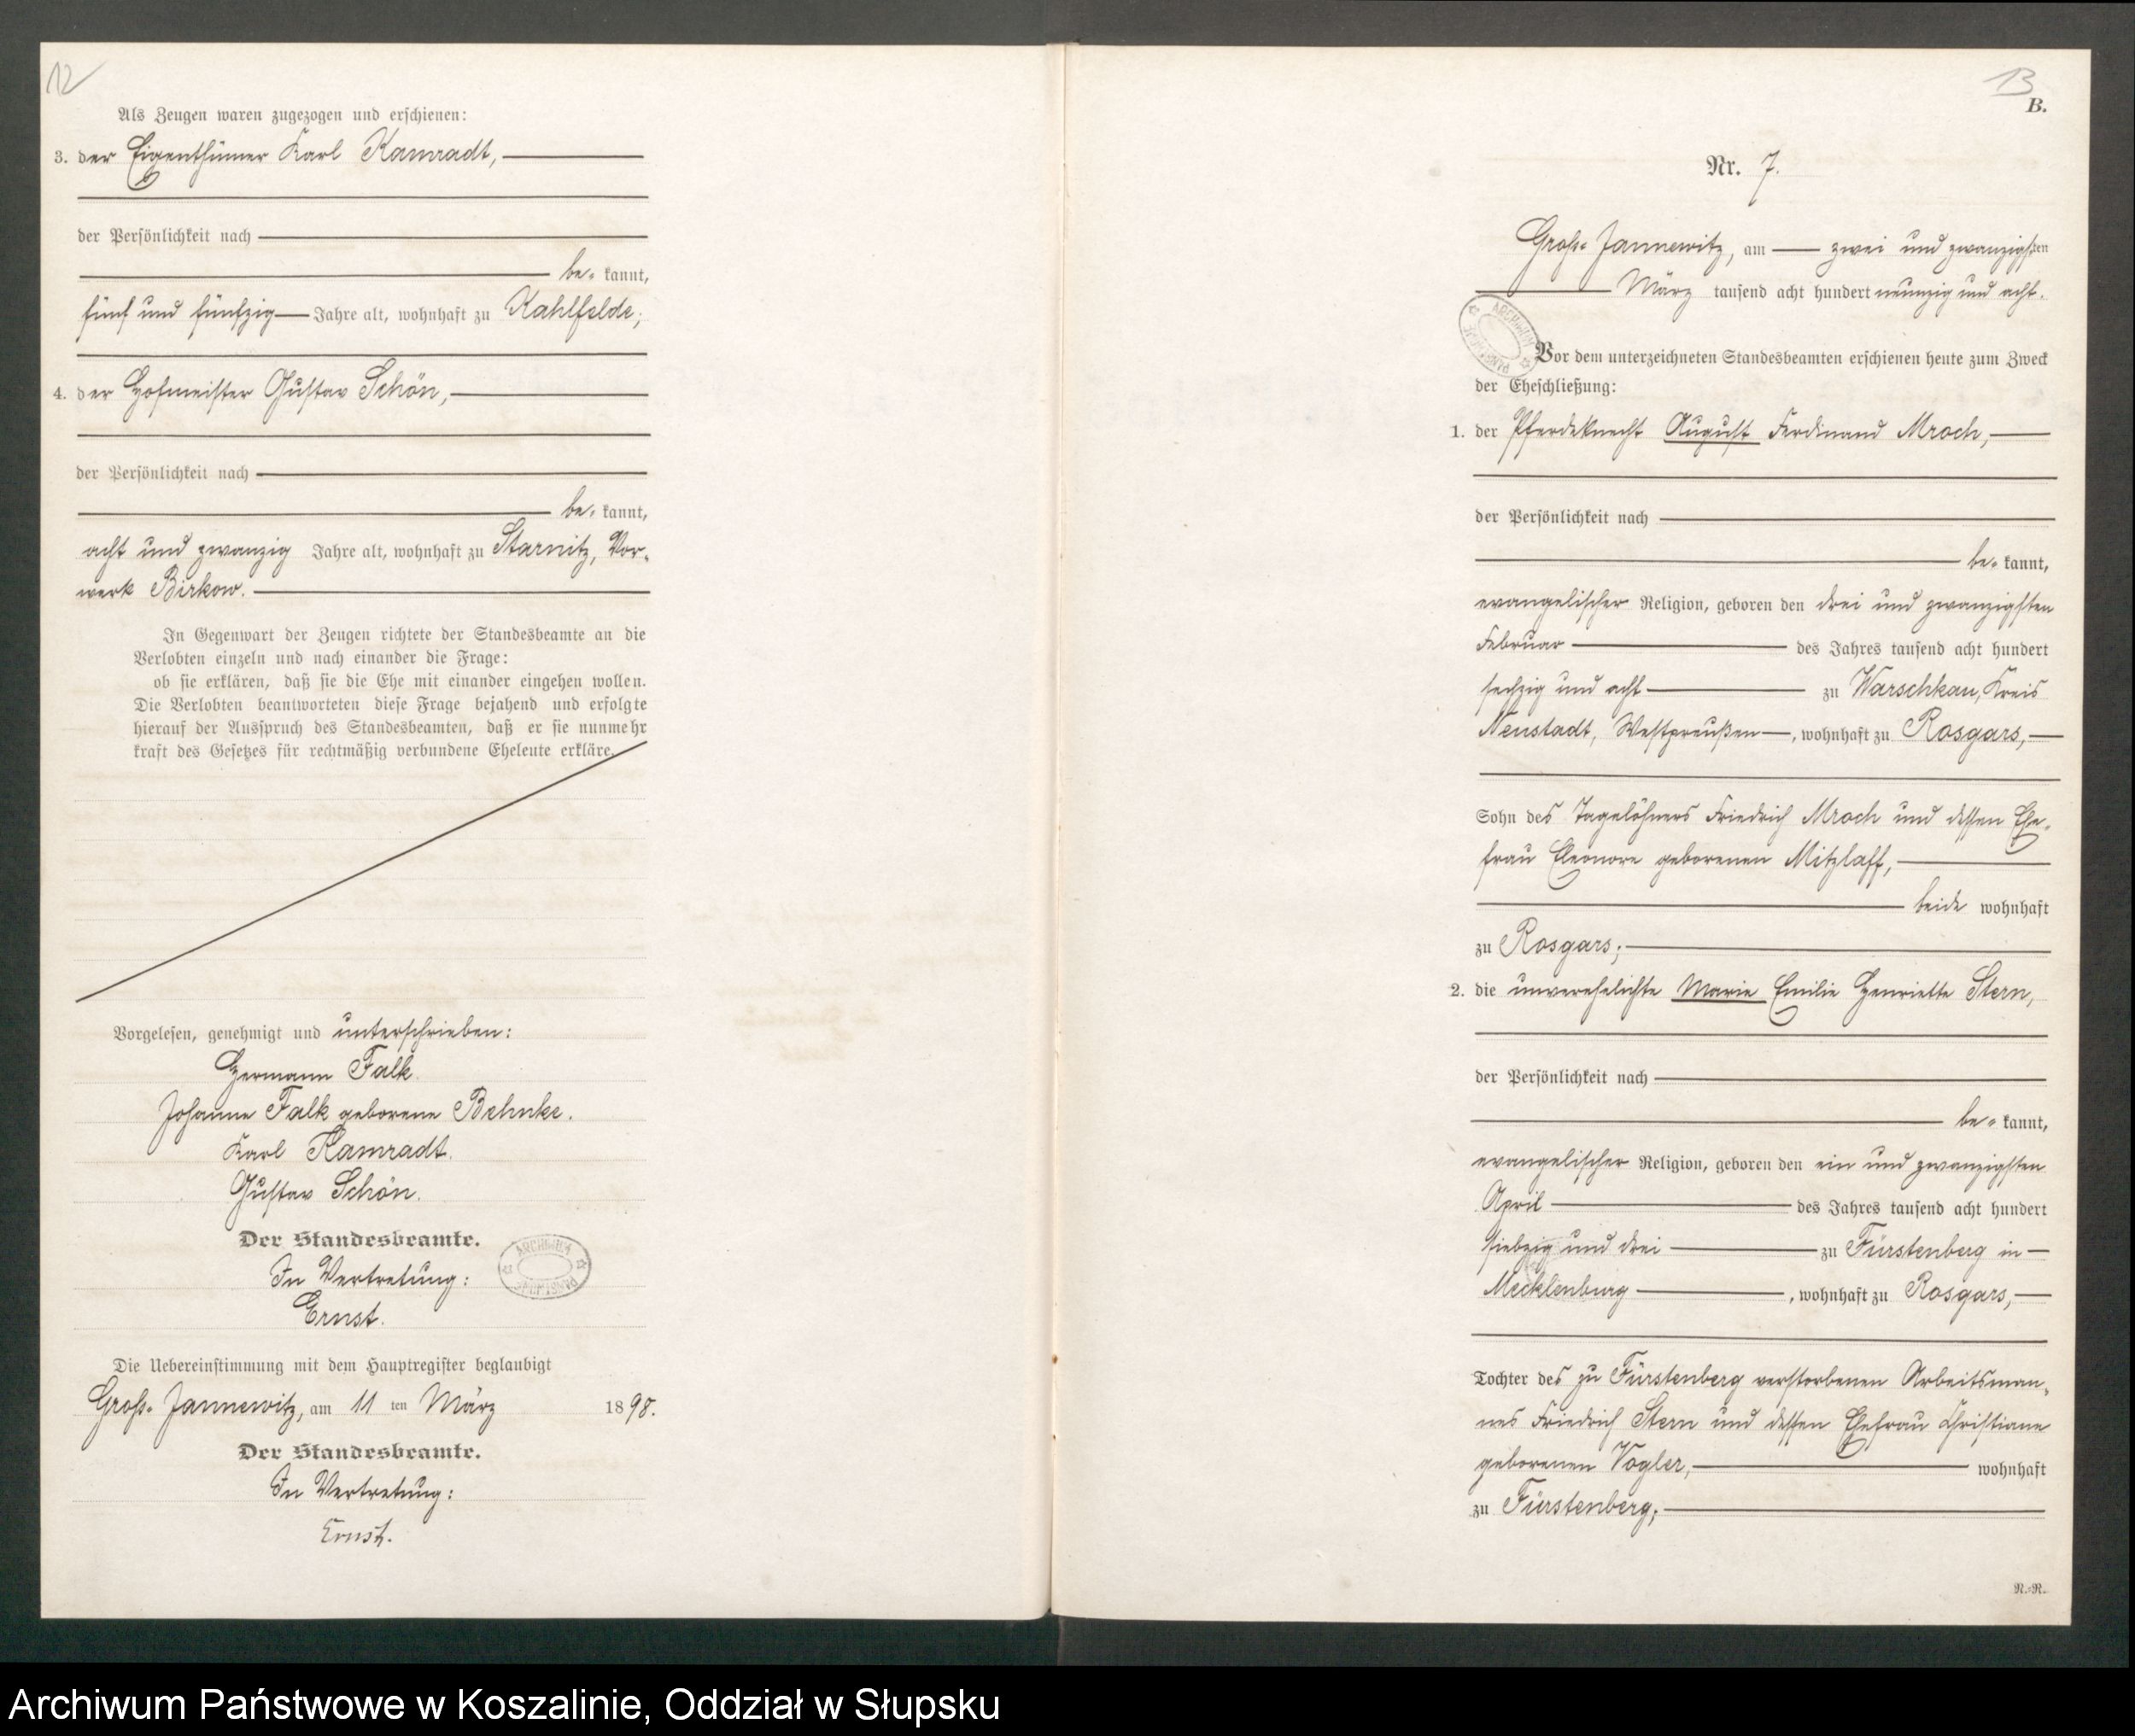 12
Als Zeugen waren zugezogen und erschienen:
3. der Eigenthümer Karl Kamradt,
der Persönlichkeit nach
be- kannt,
fünf und fünfzig Jahre alt, wohnhaft zu Kahlfelde;
4. der Hofmeister Gustav Schön,
der Persönlichkeit nach
be- kannt,
acht und zwanzig Jahre alt, wohnhaft zu Starnitz, Vor-
werk Birkow.
In Gegenwart der Zeugen richtete der Standesbeamte an die
Verlobten einzeln und nach einander die Frage:
ob sie erklären, daß sie die Ehe mit einander eingehen wollen.
Die Verlobten beantworteten diese Frage bejahend und erfolgte
hierauf der Ausspruch des Standesbeamten, daß er sie nunmehr
kraft des Gesetzes für rechtmäßig verbundene Eheleute erkläre.
Vorgelesen, genehmigt und unterschrieben:
Hermann Falk.
Johanne Falk geborene Behnke.
Karl Kamradt.
Gustav Schön.
Der Standesbeamte.
In Vertretung:
Ernst.
Die Uebereinstimmung mit dem Hauptregister beglaubigt
Groß-Jannewitz, am 11 ten März 1898.
Der Standesbeamte.
In Vertretung:
Ernst.
13
B.
Nr. 7.
Groß-Jannewitz, am zwei und zwanzigsten
März tausend acht hundert neunzig und acht.
Vor dem unterzeichneten Standesbeamten erschienen heute zum Zweck
der Eheschließung:
1. der Pferdeknecht August Ferdinand Mroch,
der Persönlichkeit nach
be- kannt,
evangelischer Religion, geboren den drei und zwanzigsten
Februar des Jahres tausend acht hundert
sechzig und acht zu Warschkau, Kreis
Neustadt, Westpreußen, wohnhaft zu Rosgars,
Sohn des Tagelöhners Friedrich Mroch und dessen Ehe-
frau Eleonore geborenen Mitzlaff,
beide wohnhaft
zu Rosgars;
2. die unverehelichte Marie Emilie Henriette Stern,
der Persönlichkeit nach
be- kannt,
evangelischer Religion, geboren den ein und zwanzigsten
April des Jahres tausend acht hundert
siebzig und drei zu Fürstenberg in
Mecklenburg, wohnhaft zu Rosgars,
Tochter des zu Fürstenberg verstorbenen Arbeitsman-
nes Friedrich Stern und dessen Ehefrau Christiane
geborenen Vogler, wohnhaft
zu Fürstenberg;
R.-R.
Archiwum Państwowe w Koszalinie, Oddział w Słupsku